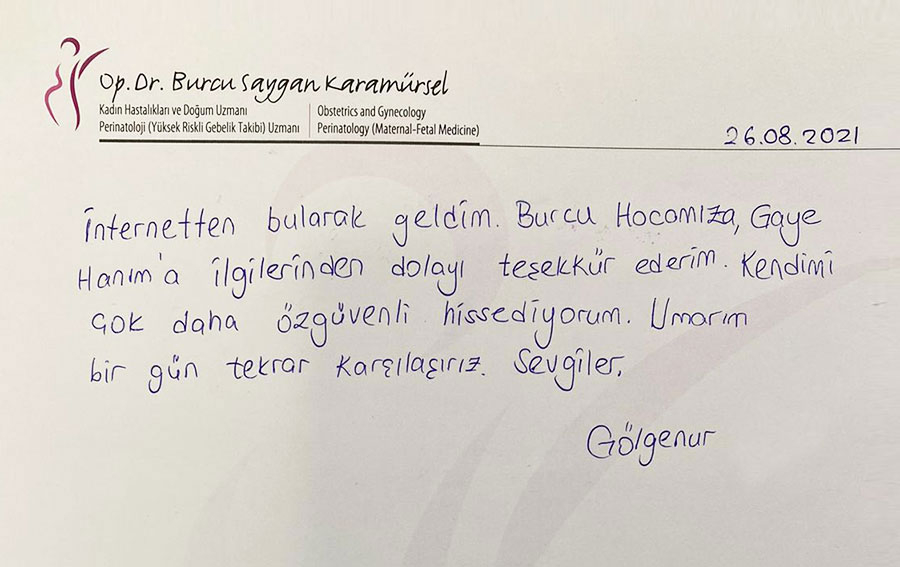 Op. Dr. Burcu Saygan Karamürsel
Kadın Hastalıkları ve Doğum Uzmanı
Perinatoloji (Yüksek Riskli Gebelik Takibi) Uzmanı
Obstetrics and Gynecology
Perinatology (Maternal-Fetal Medicine)
26.08.2021
İnternetten bularak geldim. Burcu Hocamıza, Gaye
Hanım'a ilgilerinden dolayı teşekkür ederim. Kendimi
çok daha özgüvenli hissediyorum. Umarım
bir gün tekrar karşılaşırız. Sevgiler.
Gölgenur